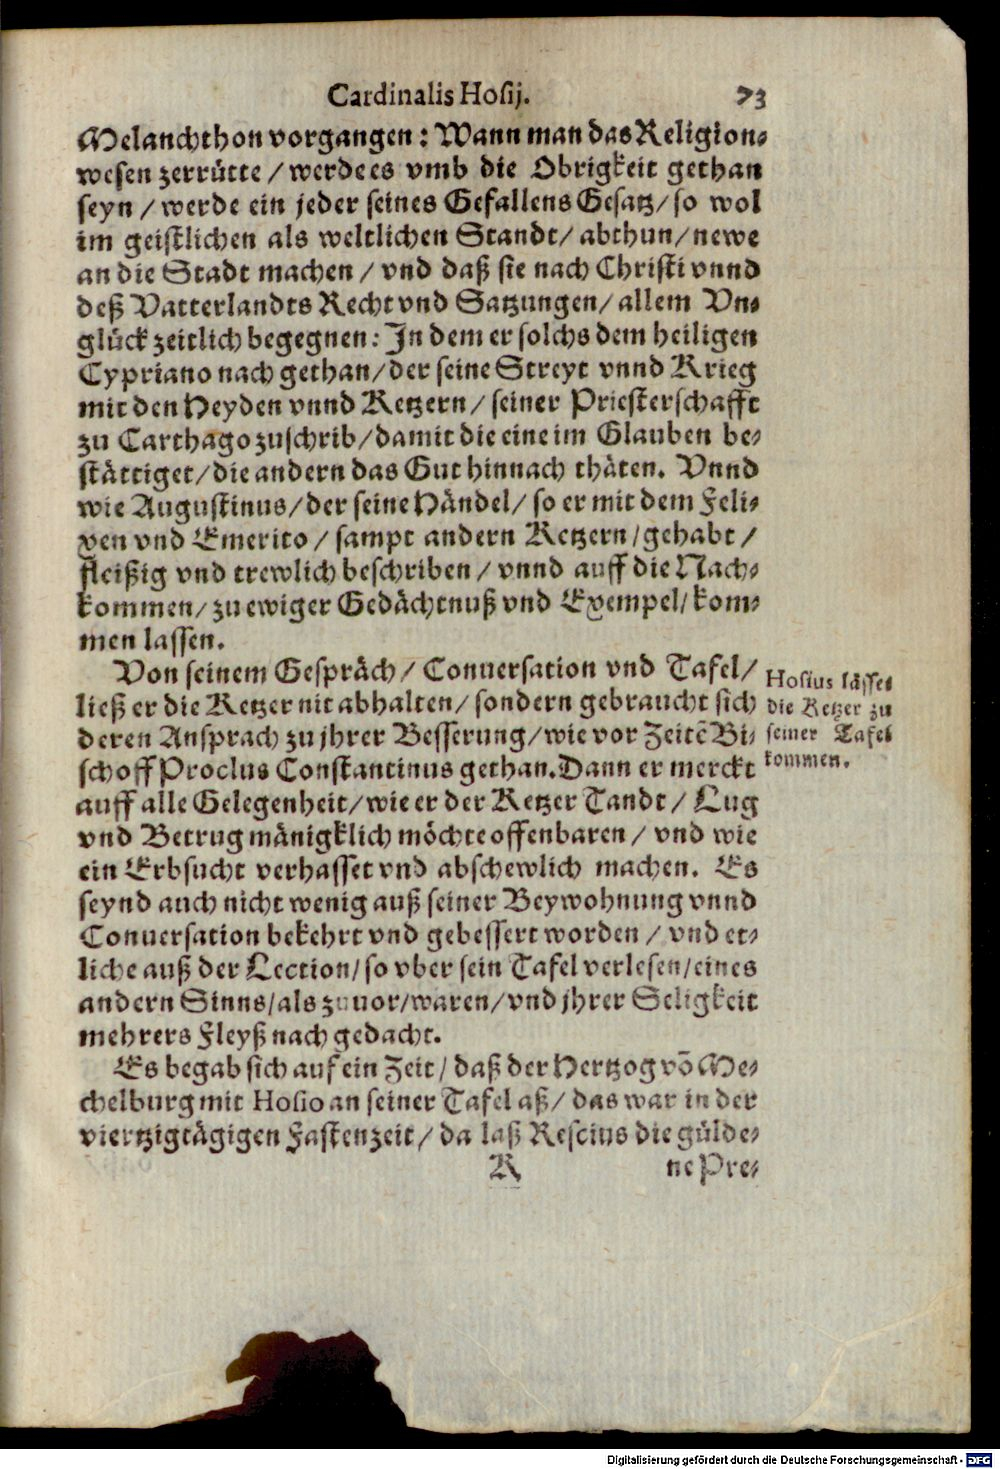 Cardinalis Hosij. 73
Melanchthon vorgangen: Wann man das Religion-
wesen zerrütte / werde es vmb die Obrigkeit gethan
seyn / werde ein jeder seines Gefallens Gesatz / so wol
im geistlichen als weltlichen Standt / abthun / newe
an die Stadt machen / vnd daß sie nach Christi vnnd
deß Vatterlandts Recht vnd Satzungen / allem Vn-
glück zeitlich begegnen: In dem er solchs dem heiligen
Cypriano nach gethan / der seine Streyt vnnd Krieg
mit den Heyden vnnd Ketzern / seiner Priesterschafft
zu Carthago zuschrib / damit die eine im Glauben be-
stättiget / die andern das Gut hinnach thäten. Vnnd
wie Augustinus / der seine Händel / so er mit dem Feli-
xen vnd Emerito / sampt andern Ketzern / gehabt /
fleißig vnd trewlich beschriben / vnnd auff die Nach-
kommen / zu ewiger Gedächtnuß vnd Exempel / kom-
men lassen.
Von seinem Gespräch / Conuersation vnd Tafel /
ließ er die Ketzer nit abhalten / sondern gebraucht sich
deren Ansprach zu jhrer Besserung / wie vor Zeitē Bi-
schoff Proclus Constantinus gethan. Dann er merckt
auff alle Gelegenheit / wie er der Ketzer Tandt / Lug
vnd Betrug mänigklich möchte offenbaren / vnd wie
ein Erbsucht verhasset vnd abschewlich machen. Es
seynd auch nicht wenig auß seiner Beywohnung vnnd
Conuersation bekehrt vnd gebessert worden / vnd et-
liche auß der Lection / so vber sein Tafel verlesen / eines
andern Sinns / als zuuor / waren / vnd jhrer Seligkeit
mehrers Fleyß nach gedacht.
Es begab sich auf ein Zeit / daß der Hertzog vō Me-
chelburg mit Hosio an seiner Tafel aß / das war in der
viertzigtägigen Fastenzeit / da laß Rescius die gülde-
K ne Pre-
Hosius lässet
die Ketzer zu
seiner Tafel
kommen.
Digitalisierung gefördert durch die Deutsche Forschungsgemeinschaft - DFG